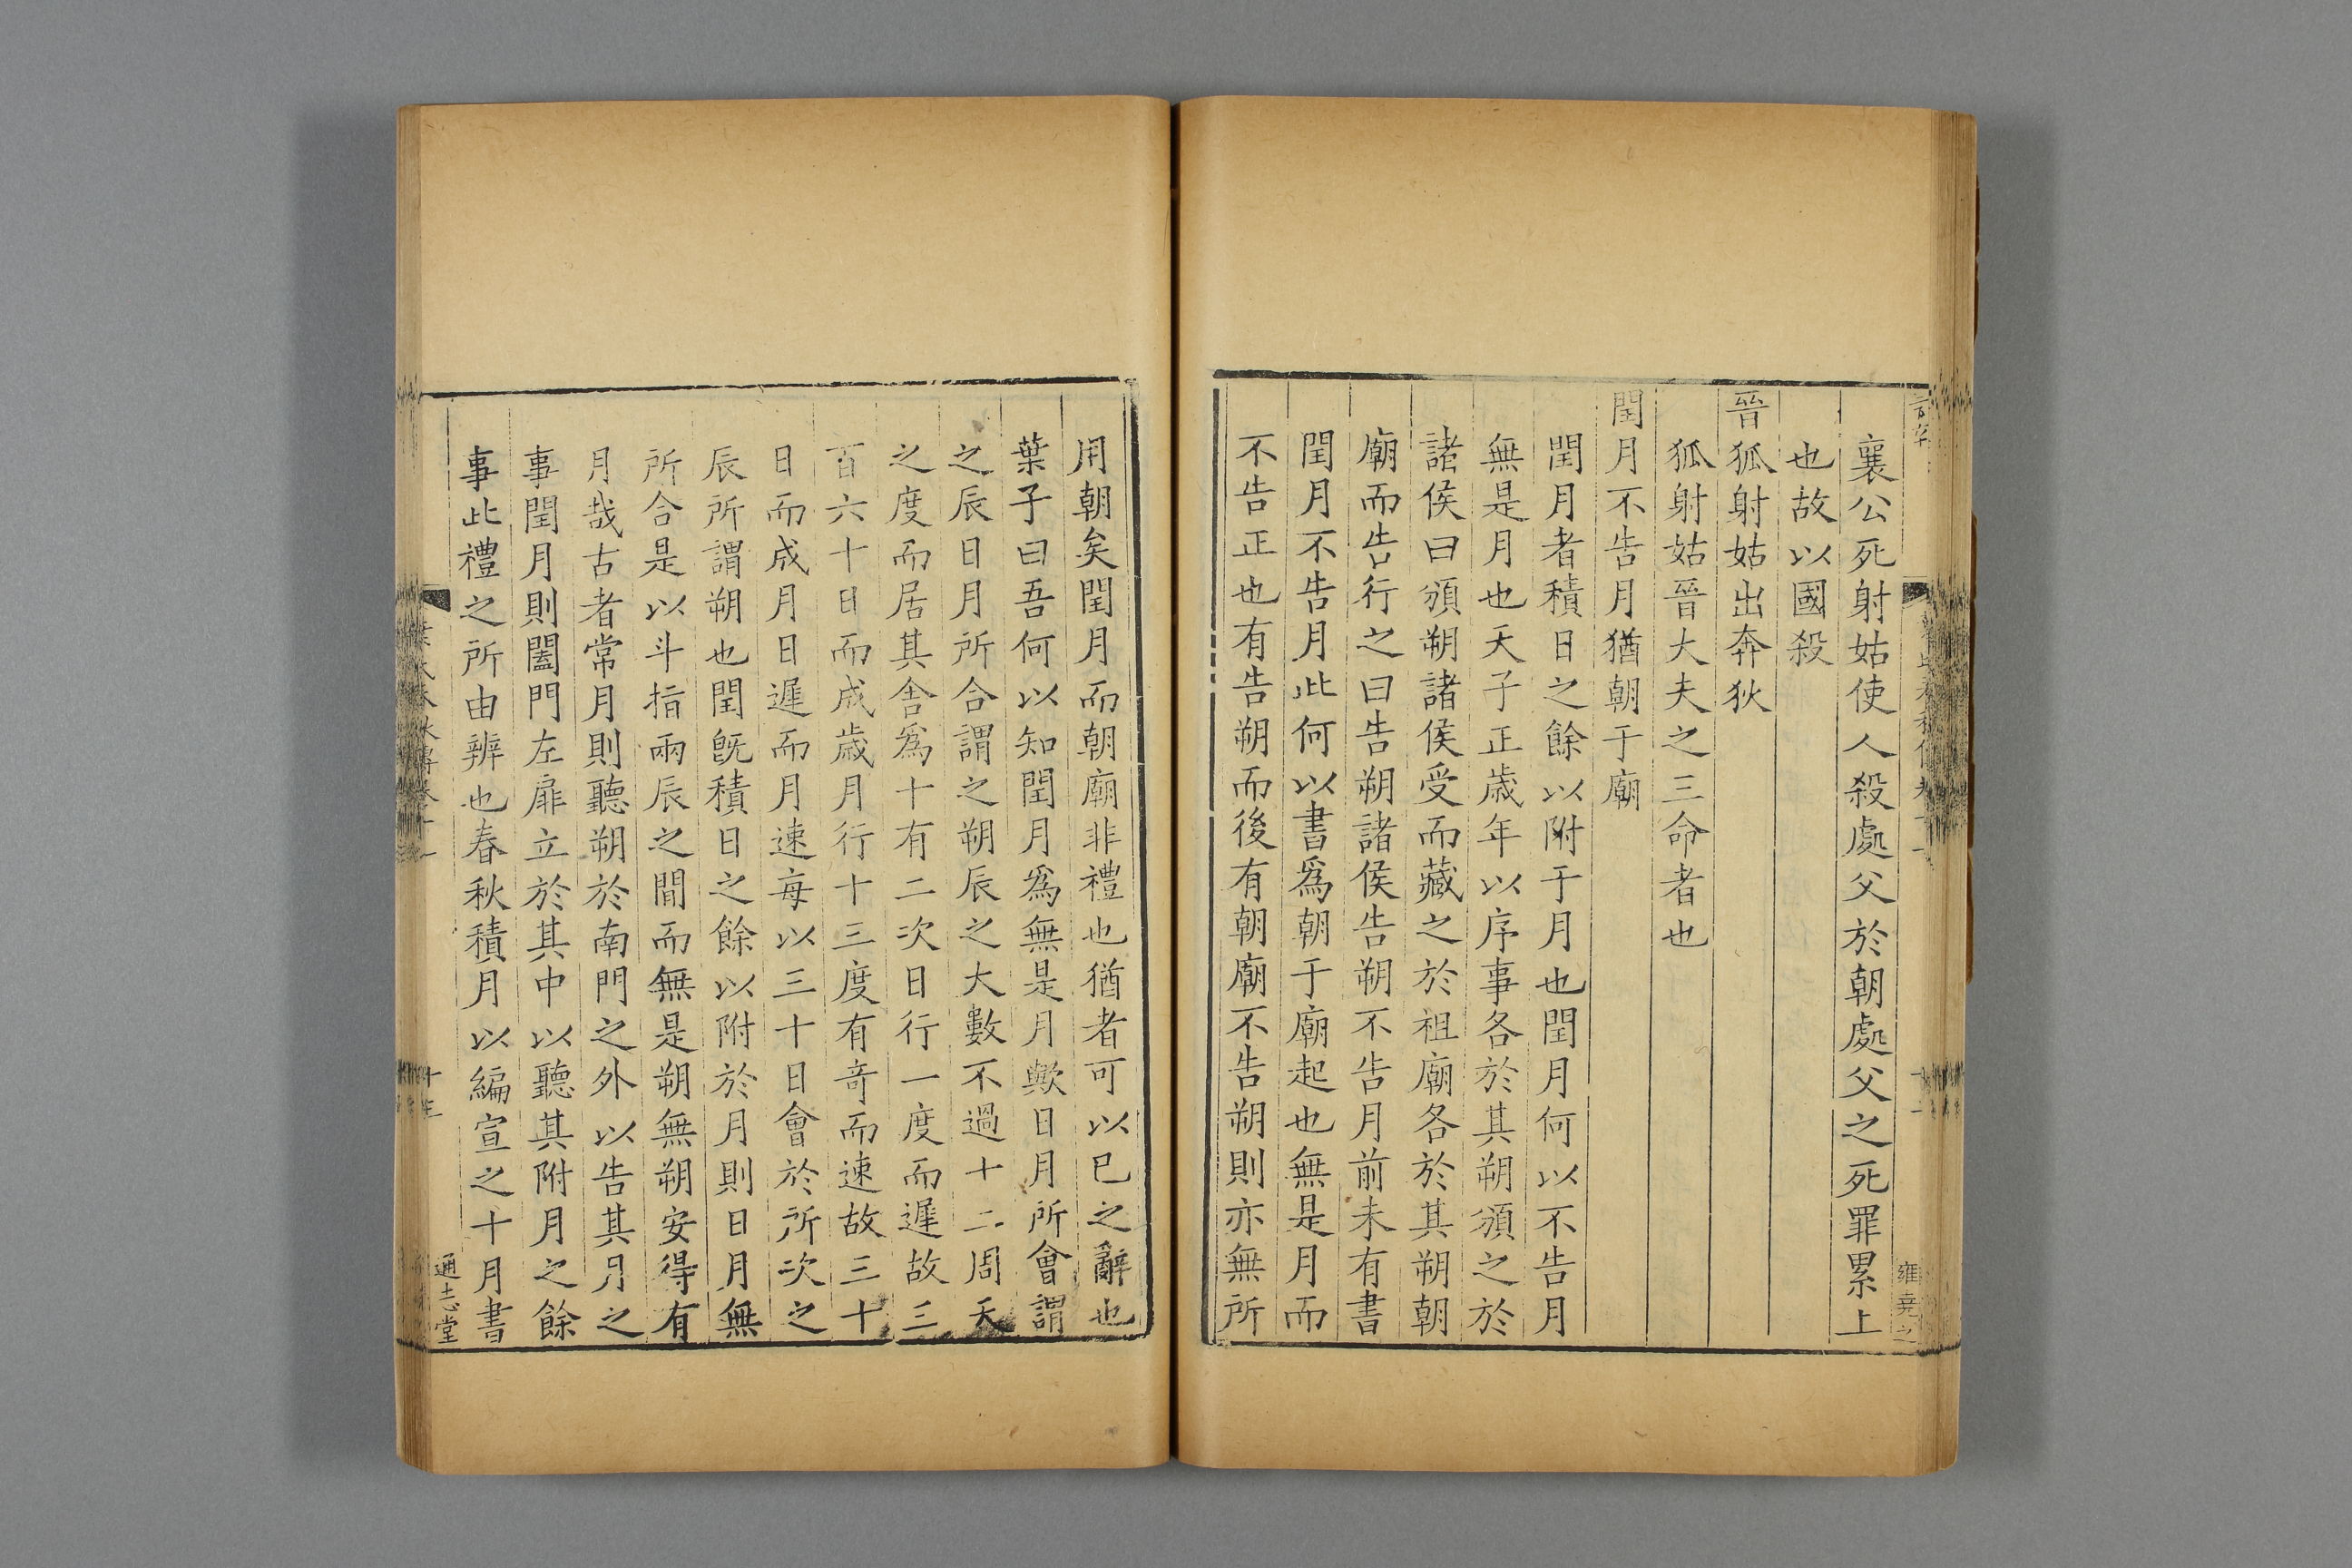 襄公死射姑使人殺處父於朝處父之死罪累上
也故以國殺
晉狐射姑出奔狄
狐射姑晉大夫之三命者也
閏月不告月猶朝于廟
閏月者積日之餘以附于月也閏月何以不告月
無是月也天子正歲年以序事各於其朔頒之於
諸侯曰頒朔諸侯受而藏之於祖廟各於其朔朝
廟而告行之曰告朔諸侯告朔不告月前未有書
閏月不告月此何以書爲朝于廟起也無是月而
不告正也有告朔而後有朝廟不告朔則亦無所
用朝矣閏月而朝廟非禮也猶者可以已之辭也
葉子曰吾何以知閏月爲無是月歟日月所會謂
之辰日月所合謂之朔辰之大數不過十二周天
之度而居其舍爲十有二次日行一度而遲故三
百六十日而成歲月行十三度有奇而速故三十
日而成月日遲而月速每以三十日會於所次之
辰所謂朔也閏既積日之餘以附於月則日月無
所合是以斗指兩辰之間而無是朔無朔安得有
月哉古者常月則聽朔於南門之外以告其月之
事閏月則闔門左扉立於其中以聽其附月之餘
事此禮之所由辨也春秋積月以編宣之十月書
通志堂